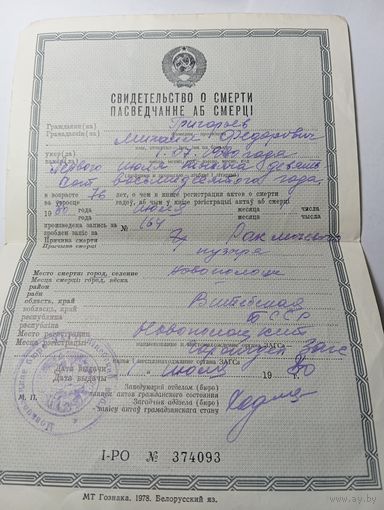 СВИДЕТЕЛЬСТВО О СМЕРТИ
ПАСВЕДЧАННЕ АБ СМЕРЦІ
Гражданин(ка) Григорьев
Грамадзянін(ка)
Михаил Федорович
умер(ла) 1.07.1980 года
памёр(ла) Первого июля тысяча девять
сот восьмидесятого года
в возрасте 76 лет, о чем в книге регистрации актов о смерти
ва ўзросце гадоў, аб чым у кнізе рэгістрацыі актаў аб смерці
1980 года июля месяца числа
года месяца чысла
произведена запись за № 164
зроблен запіс за
Причина смерти Рак мочевого
Прычына смерці
пузыря
Место смерти: город, селение Новополоцк
Месца смерці: горад, вёска
район
раён
область, край Витебская
вобласць, край
республика БССР
рэспубліка
Место регистрации Новополоцкий
Месца рэгістрацыі
наименование и местонахождение органа ЗАГСа
горотдел ЗАГС
Дата выдачи 1 июля 1980 г.
Дата выдачы
М. П.
Заведующий отделом (бюро)
записи актов гражданского состояния
Загадчык аддзела (бюро)
запісу актаў грамадзянскага стану
I-РО № 374093
МТ Гознака. 1978. Белорусский яз.
au.by